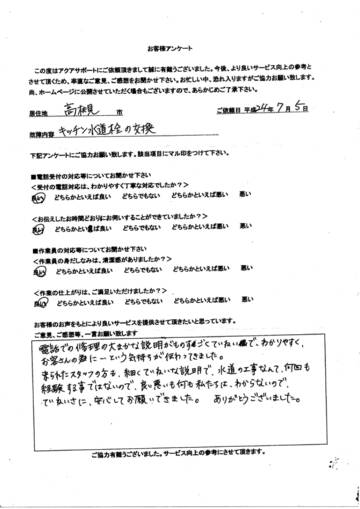 お客様アンケート
この度はアクアサポートにご依頼頂きまして誠に有難うございました。今後、より良いサービス向上の参考と
させて頂くため、率直なご意見、ご感想をお聞かせ下さい。お忙しい中、恐れ入りますがご協力お願い致します。
尚、ホームページに公開させていただく場合もございますので、あらかじめご了承下さい。
居住地 高槻 市 ご依頼日 平成24年7月5日
故障内容 キッチン水道栓の交換
下記アンケートにご協力お願い致します。該当項目にマル印をつけて下さい。
■電話受付の対応等についてお聞かせ下さい
<受付の電話対応は、わかりやすく丁寧な対応でしたか?>
良い どちらかといえば良い どちらでもない どちらかといえば悪い 悪い
<お伝えしたお時間どおりにお伺いすることができていましたか?>
良い どちらかといえば良い どちらでもない どちらかといえば悪い 悪い
■作業員の対応等についてお聞かせ下さい
<作業員の身だしなみは、清潔感がありましたか?>
良い どちらかといえば良い どちらでもない どちらかといえば悪い 悪い
<作業の仕上がりは、ご満足いただけましたか?>
良い どちらかといえば良い どちらでもない どちらかといえば悪い 悪い
お客様のお声をもとにより良いサービスを提供させて頂きたいと思っています。
ご意見、ご感想等、一言お願い致します
電話での修理の大まかな説明がものすごくていねいで、わかりやすく、
お客さんの為に―という気持ちが伝わってきました。
来られたスタッフの方も、細くていねいな説明で、水道の工事なんて、何回も
経験する事ではないので、良い悪いも何も私たちは、わからないので、
ていねいさに、安心してお願いできました。 ありがとうございました。
ご協力有難うございました。サービス向上の参考にさせて頂きます。